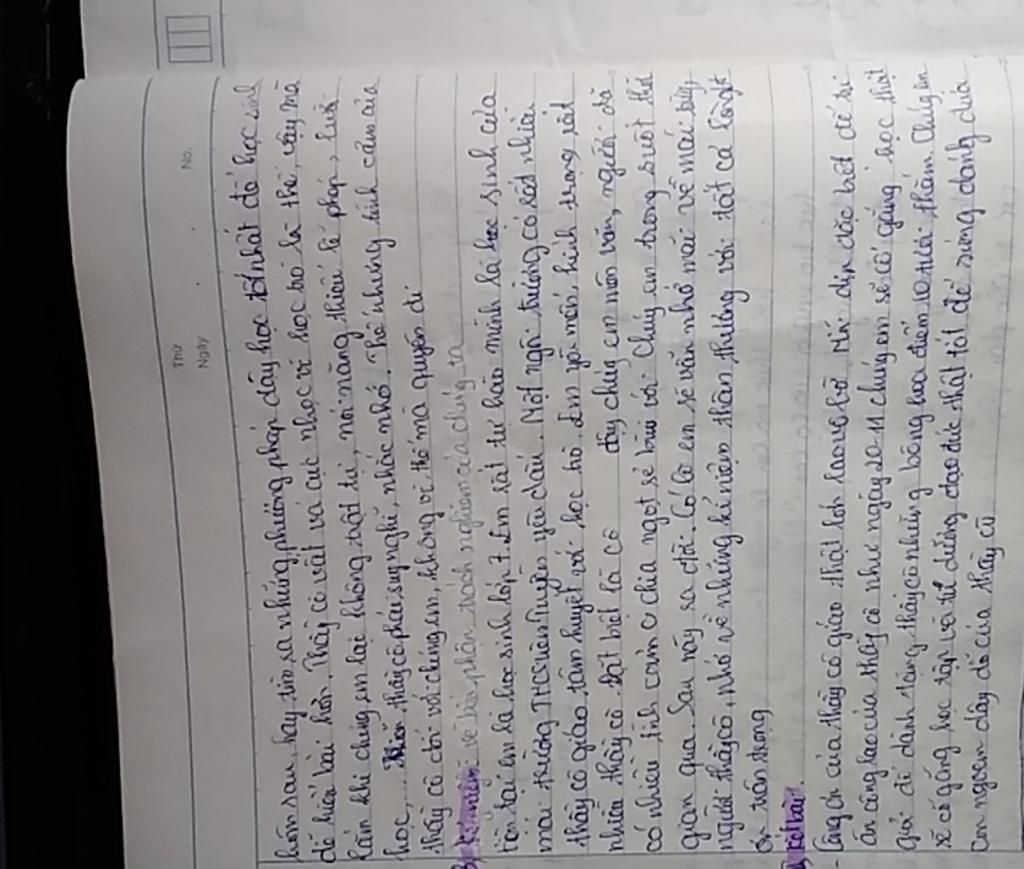 Thứ
Ngày No.
hôm sau, hay tìm ra những phương pháp dạy học tốt nhất để học sinh
dễ hiểu bài hơn. Thầy cô vất vả cực nhọc vì học trò là thế, vậy mà
lắm khi chúng em lại không trật tự, nói năng thiếu lễ phép, lười
học,... thầy cô phải suy nghĩ, nhắc nhở. Thế nhưng tình cảm của
thầy cô đối với chúng em, không vì thế mà quyên đi
3, Kỉ niệm về bổn phận, trách nghiệm của chúng ta
tồn tại em là học sinh lớp 7. Em rất tự hào mình là học sinh của
mái trường THCS Yên yêu dấu. Một ngôi trường có rất nhiều
thầy cô giáo tâm huyết với học trò. Em yêu mến, kính trọng rất
nhiều thầy cô. Đặt biệt là cô dạy chúng em môn văn, người đã
có nhiều tình cảm chia ngọt sẻ bùi với chúng em trong suốt thời
gian qua. Sau này ra đời. Có lẽ em sẽ vẫn nhớ mãi về mái trường,
người thầy cô, nhớ về những kỉ niệm thân thương với tất cả lòng biết
ơn trân trọng
Kết bài.
- Công ơn của thầy cô giáo thật lớn lao vô bờ. Nhân dịp đặc biệt để tri
ân công lao của thầy cô như ngày 20-11 chúng em sẽ cố gắng học thật
giỏi để dành tặng thầy cô những bông hoa điểm 10 tươi thắm. Chúng em
sẽ cố gắng học tập và tu dưỡng đạo đức thật tốt để xứng đáng đứa
con ngoan dạy dỗ của thầy cô